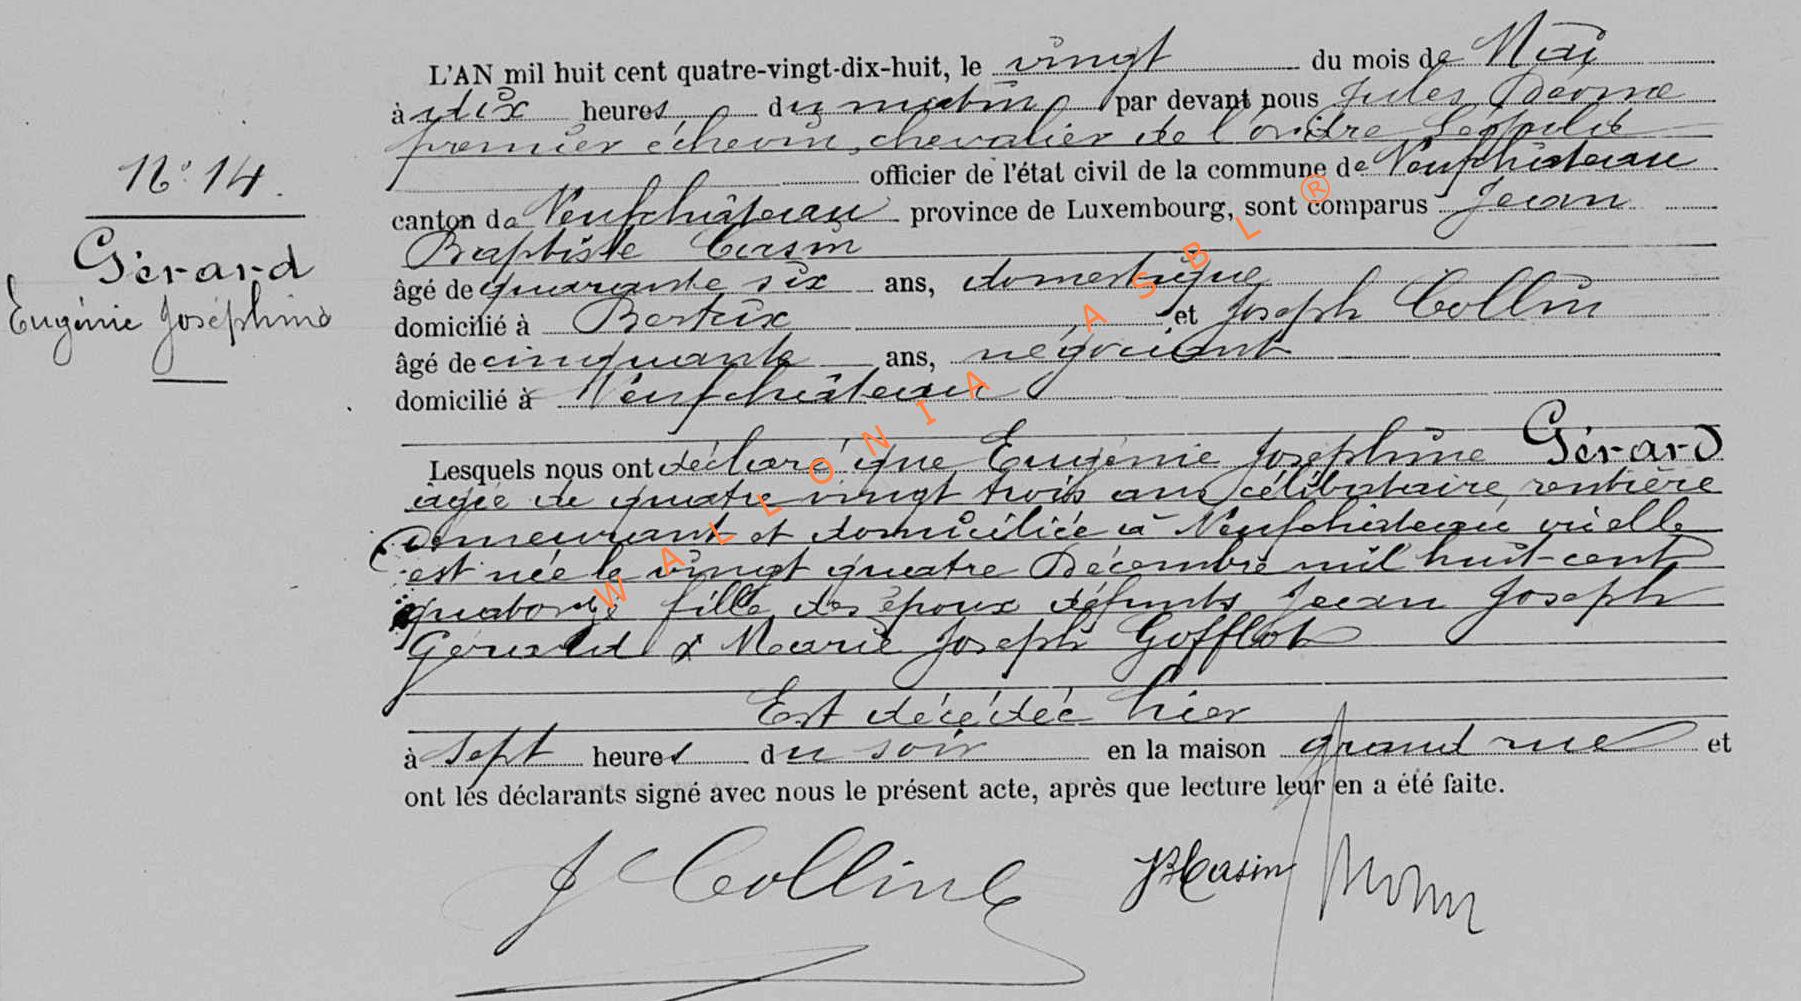 L'AN mil huit cent quatre-vingt-dix-huit, le vingt du mois de Mai
à dix heures, du matin par devant nous Jules
premier échevin, chevalier de l'ordre Léopold
officier de l'état civil de la commune de Neufchâteau
canton de Neufchâteau province de Luxembourg, sont comparus Jean
Baptiste Casin
âgé de quarante six ans, domestique
domicilié à Bertrix et Joseph Collin
âgé de cinquante ans, négociant
domicilié à Neufchâteau
N° 14.
Gérard
Eugénie Joséphine
Lesquels nous ont déclaré que Eugénie Joséphine Gérard
agée de quatre vingt trois ans célibataire, rentière
demeurant et domiciliée à Neufchâteau où elle
est née le vingt quatre Décembre mil huit-cent
quatorze fille des époux défunts Jean Joseph
Gérard & Marie Joseph Gofflot
Est décédée hier
à sept heures du soir en la maison grand rue et
ont les déclarants signé avec nous le présent acte, après que lecture leur en a été faite.
J Collin
JBCasin
WALLONIA ASBL ®